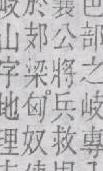 部之岐專
襄公將兵救
於郊梁匈奴
岐山字地理